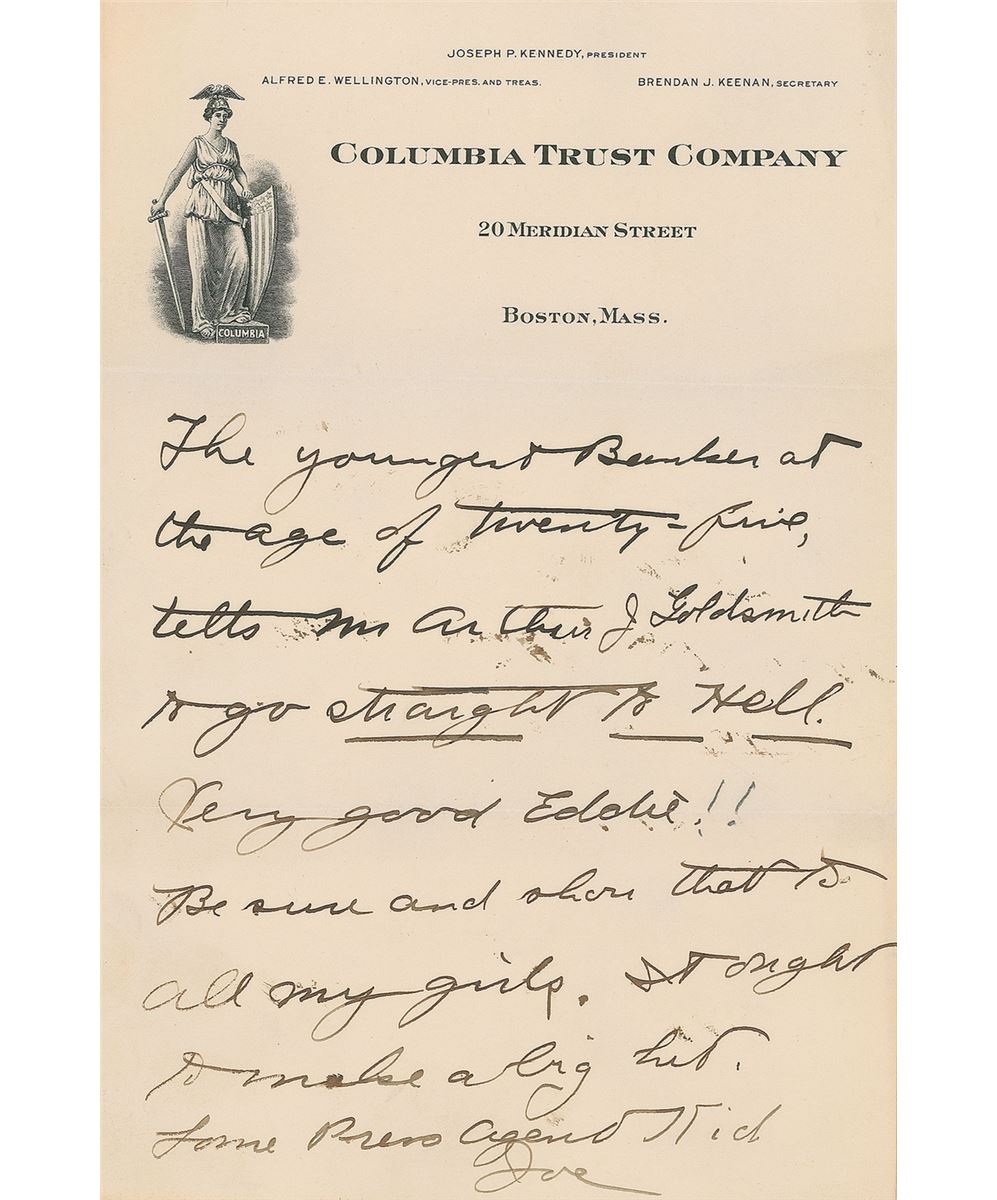 JOSEPH P. KENNEDY, PRESIDENT
ALFRED E. WELLINGTON, VICE-PRES. AND TREAS. BRENDAN J. KEENAN, SECRETARY
COLUMBIA TRUST COMPANY
20 MERIDIAN STREET
BOSTON, MASS.
COLUMBIA
The youngest Banker at
the age of twenty-five,
tells Mr Arthur J Goldsmith
to go straight to Hell.
Very good Eddie!!
Be sure and show that to
all my girls. It ought
to make a big hit.
Some Press Agent Kid
Joe